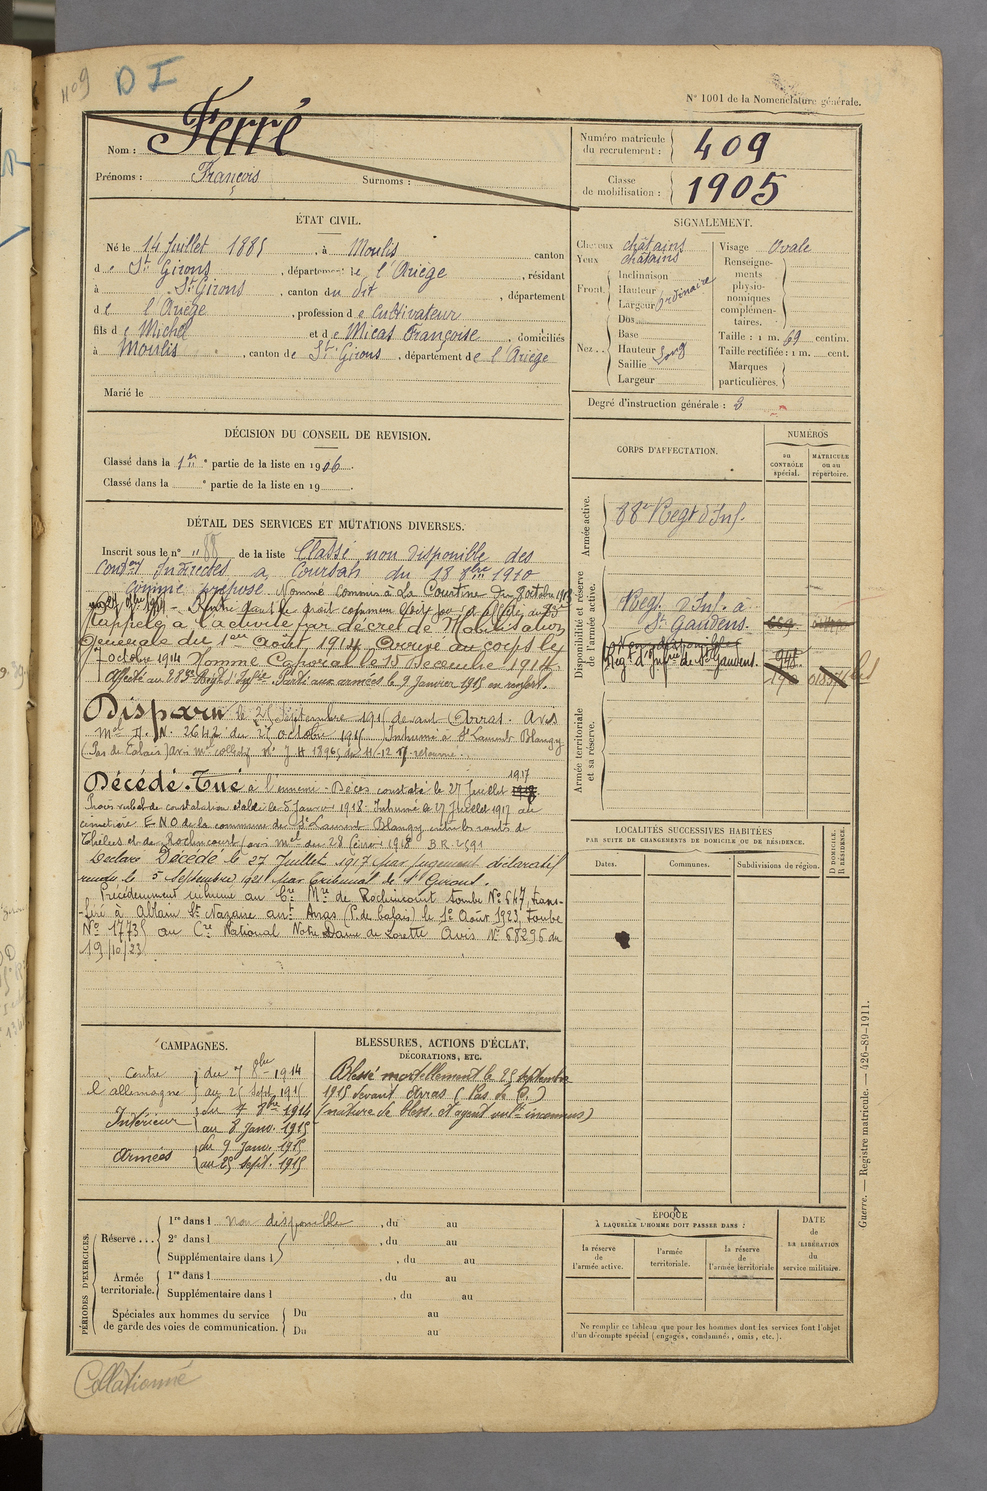 409
D I
N° 1001 de la Nomenclature générale.
Nom : Ferré
Prénoms : François Surnoms :
Numéro matricule du recrutement : 409
Classe de mobilisation : 1905
ÉTAT CIVIL.
Né le 14 Juillet 1885, à Moulis canton
de St Girons, département de l'Ariège, résidant
à St Girons, canton du dit, département
de l'Ariège, profession de cultivateur
fils de Michel et de Micas Françoise, domiciliés
à Moulis, canton de St Girons, département de l'Ariège
Marié le
SIGNALEMENT.
Cheveux châtains
Yeux châtains
Front. Inclinaison
Hauteur ordinaire
Largeur
Nez.. Dos
Base
Hauteur long
Saillie
Largeur
Visage Ovale
Renseignements physionomiques complémentaires.
Taille : 1 m. 69 centim.
Taille rectifiée : 1 m. cent.
Marques particulières.
Degré d'instruction générale : 3
DÉCISION DU CONSEIL DE REVISION.
Classé dans la 1ère partie de la liste en 1906.
Classé dans la e partie de la liste en 19
DÉTAIL DES SERVICES ET MUTATIONS DIVERSES.
Inscrit sous le n° 88 de la liste Classé non disponible des
Indirectes à Coursan du 18 8bre 1910
comme préposé. Nommé Commis à La Courtine du 8 octobre 1913
Rappelé à l'activité par décret de Mobilisation
Générale du 1er Août 1914 Arrivé au corps le
7 octobre 1914 Nommé Caporal le 15 Décembre 1914
Affecté au 283e Régt d'Infie. Parti aux armées le 9 Janvier 1915 en renfort.
Disparu le 25 Septembre 1915 devant Arras. Avis
Mel N. 2642 du 27 octobre 1915 Inhumé à St Laurent Blangy
(Pas de Calais) avis mel collectif
Décédé. Tué à l'ennemi. Décès constaté le 27 Juillet 1917
Procès verbal de constatation établi le 5 Janvier 1918. Inhumé le 27 Juillet 1917 au
cimetière E.N.O. de la commune de St Laurent Blangy entre les routes de
Thélus et de Rochincourt avis mel du 28 février 1918 B.R. 2591
Déclaré Décédé le 27 Juillet 1917 par jugement déclaratif
rendu le 5 Septembre 1921 par Tribunal de St Girons.
Précédemment inhumé au Cre Mre de Rochincourt tombe N° 647, trans-
-féré à Ablain St Nazaire ant Arras (P. de Calais) le 1er Août 1923, tombe
N° 17735 au Cre National Notre Dame de Lorette Avis N° 68296 du
19/10/23
CORPS D'AFFECTATION.
NUMÉROS
au CONTRÔLE spécial.
MATRICULE ou au répertoire.
Armée active.
88e Regt d'Inf.
Disponibilité et réserve de l'armée active.
Regt d'Inf. à
St Gaudens. 669
Non disponible
Regt d'Infrie de St Gaudens.
Armée territoriale et sa réserve.
LOCALITÉS SUCCESSIVES HABITÉES
PAR SUITE DE CHANGEMENTS DE DOMICILE OU DE RÉSIDENCE.
Dates. Communes. Subdivisions de région.
D DOMICILE.
R RÉSIDENCE.
CAMPAGNES.
Contre l'allemagne du 7 8bre 1914
au 25 Sept. 1915
Intérieur du 7 8bre 1914
au 8 Janv. 1915
Armées du 9 Janv. 1915
au 25 Sept. 1915
BLESSURES, ACTIONS D'ÉCLAT,
DÉCORATIONS, ETC.
Blessé mortellement le 25 septembre
1915 devant Arras (Pas de C.)
(nature de bless. et agent vulnt inconnus)
PÉRIODES D'EXERCICES.
Réserve... 1re dans l non disponible, du au
2e dans l, du au
Supplémentaire dans l, du au
Armée territoriale. 1re dans l, du au
Supplémentaire dans l, du au
Spéciales aux hommes du service de garde des voies de communication. Du au
Du au
ÉPOQUE
À LAQUELLE L'HOMME DOIT PASSER DANS :
la réserve de l'armée active.
l'armée territoriale.
la réserve de l'armée territoriale
DATE de LA LIBÉRATION du service militaire.
Ne remplir ce tableau que pour les hommes dont les services font l'objet
d'un décompte spécial (engagés, condamnés, omis, etc.).
Guerre. — Registre matricule. — 426-89-1911.
Collationné